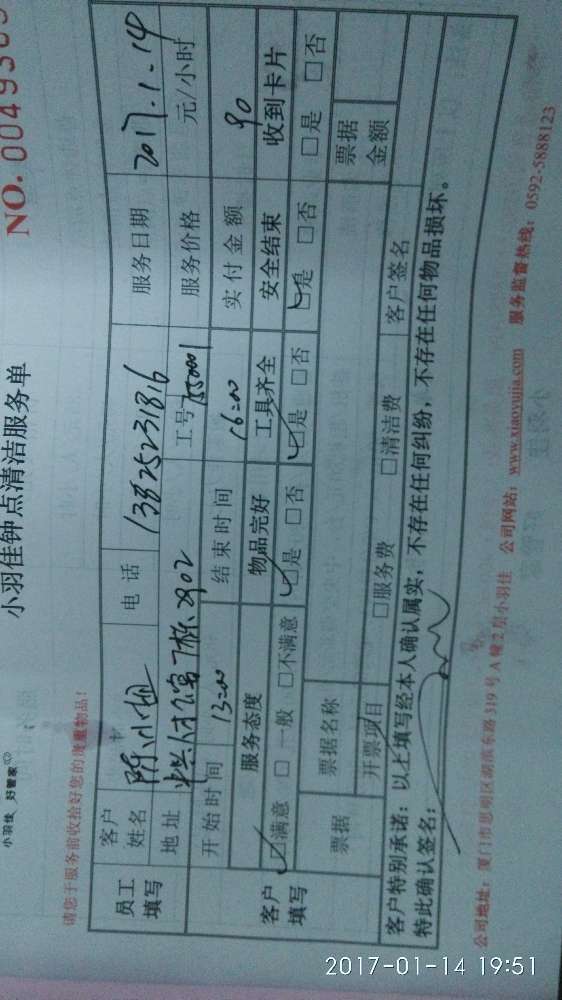 小羽佳 好管家
小羽佳钟点清洁服务单
NO. 0049369
请您于服务前收拾好您的贵重物品!
员工填写 客户姓名 陈小姐 电话 13825231816 服务日期 2017.1.14
地址 工号 550001 服务价格 元/小时
开始时间 13:00 结束时间 16:00 实付金额 90
客户填写 服务态度 物品完好 工具齐全 安全结束 收到卡片
☑满意 □一般 □不满意 ☑是 □否 ☑是 □否 ☑是 □否 □是 □否
票据 票据名称 票据金额
开票项目 □服务费 □清洁费 客户签名
客户特别承诺:以上填写经本人确认属实,不存在任何纠纷,不存在任何物品损坏。
特此确认签名:
公司地址:厦门市思明区湖滨东路319号A幢2层小羽佳 公司网站:www.xiaoyujia.com 服务监督热线:0592-5888123
2017-01-14 19:51